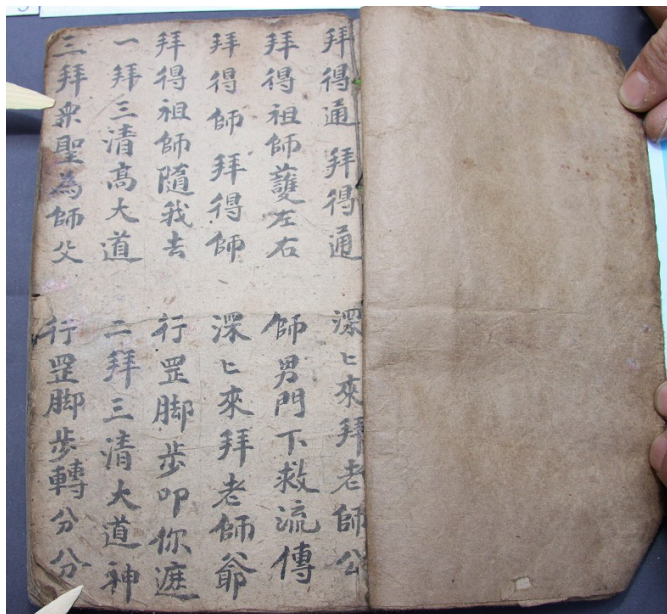 拜得通 拜得通 深〻來拜老師公
拜得祖師護左右 師男門下救流傳
拜得師 拜得師 深〻來拜老師爺
拜得祖師隨我去 行罡脚步叩你遮
一拜三清高大道 二拜三清大道神
三拜衆聖為師父 行罡脚步轉分分